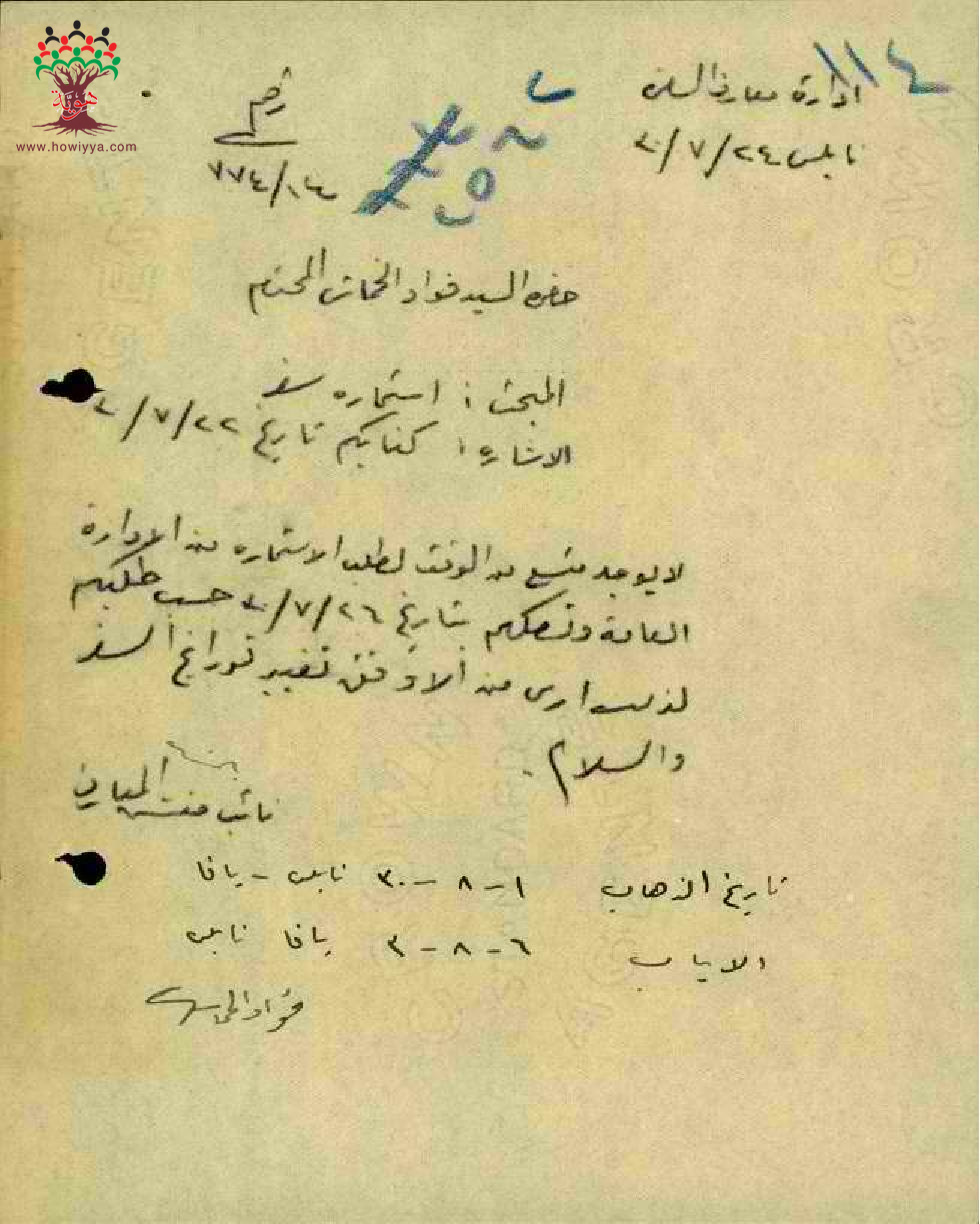 هوية
www.howiyya.com
١١٤
ادارة معارف السامره
نابلس ٢٤/٧/٣٠
رقم
٧٧٤/١٤
حضرة السيد فؤاد الخماش المحترم
المبحث : استماره سفر
الاشاره : كتابكم تاريخ ٢٢/٧/٣٠
لا يوجد متسع من الوقت لطلب الاستماره من الادارة
العامة وتصلكم بتاريخ ٢٦/٧/٣٠ حسب طلبكم
لذلك ارى من الاوفق تغيير تواريخ السفر
والسلام.
نائب مفتش المعارف
تاريخ الذهاب ١-٨-٣٠ نابلس - يافا
الاياب ٦-٨-٣٠ يافا نابلس
فؤاد الخماش